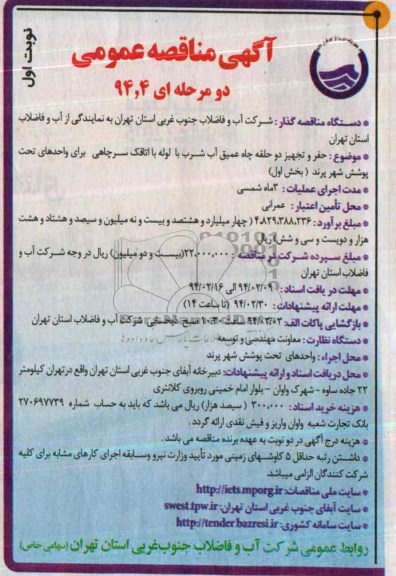 نوبت اول
آگهی مناقصه عمومی
دو مرحله ای ۹۴,۴
* دستگاه مناقصه گذار: شرکت آب و فاضلاب جنوب غربی استان تهران به نمایندگی از آب و فاضلاب
استان تهران
* موضوع: حفر و تجهیز دو حلقه چاه عمیق آب شرب با لوله با اتاقک سرچاهی برای واحدهای تحت
پوشش شهر پرند (بخش اول)
* مدت اجرای عملیات: ۳ماه شمسی
* محل تأمین اعتبار: عمرانی
* مبلغ برآورد: ۴،۸۲۹،۳۸۸،۲۳۶ (چهار میلیارد و هشتصد و بیست و نه میلیون و سیصد و هشتاد و هشت
هزار و دویست و سی و شش) ریال
* مبلغ سپرده شرکت در مناقصه: ۲۲،۰۰۰،۰۰۰ (بیست و دو میلیون) ریال در وجه شرکت آب و
فاضلاب استان تهران
* مهلت دریافت اسناد: ۹۴/۰۲/۰۹ الی ۹۴/۰۲/۱۶
* مهلت ارائه پیشنهادات: ۹۴/۰۲/۳۰ (تا ساعت ۱۴)
* بازگشایی پاکات الف: ۹۴/۰۳/۰۳ ساعت ۱۰:۳۰ صبح دوشنبه شرکت آب و فاضلاب استان تهران
* دستگاه نظارت: معاونت مهندسی و توسعه
* محل اجراء: واحدهای تحت پوشش شهر پرند
* محل دریافت اسناد و ارائه پیشنهادات: دبیرخانه آبفای جنوب غربی استان تهران واقع درتهران کیلومتر
۲۲ جاده ساوه - شهرک واوان - بلوار امام خمینی روبروی کلانتری
* هزینه خرید اسناد: ۳۰۰،۰۰۰ (سیصد هزار) ریال می باشد که باید به حساب شماره ۲۷۰۶۹۷۷۳۹
بانک تجارت شعبه واوان واریز و فیش نقدی ارائه گردد.
* هزینه درج آگهی در دو نوبت به عهده برنده مناقصه می باشد.
* داشتن رتبه حداقل ۵ کاوشهای زمینی مورد تأیید وزارت نیرو وسابقه اجرای کارهای مشابه برای کلیه
شرکت کنندگان الزامی میباشد.
* سایت ملی مناقصات: http://iets.mporg.ir
* سایت آبفای جنوب غربی استان تهران: swest.tpw.ir
* سایت سامانه کشوری: http://tender.bazresi.ir
روابط عمومی شرکت آب و فاضلاب جنوب غربی استان تهران (سهامی خاص)